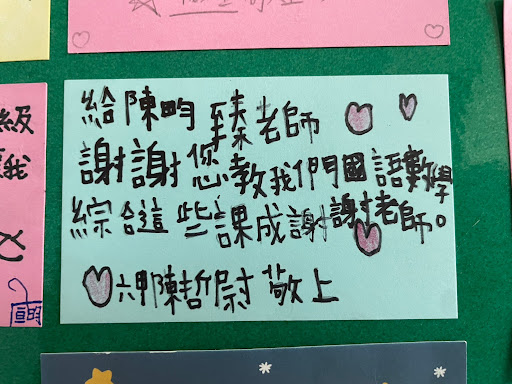 給陳畇蓁老師
謝謝您教我們國語數學
綜合這些課成謝謝老師。
六甲陳哲尉敬上
級
我